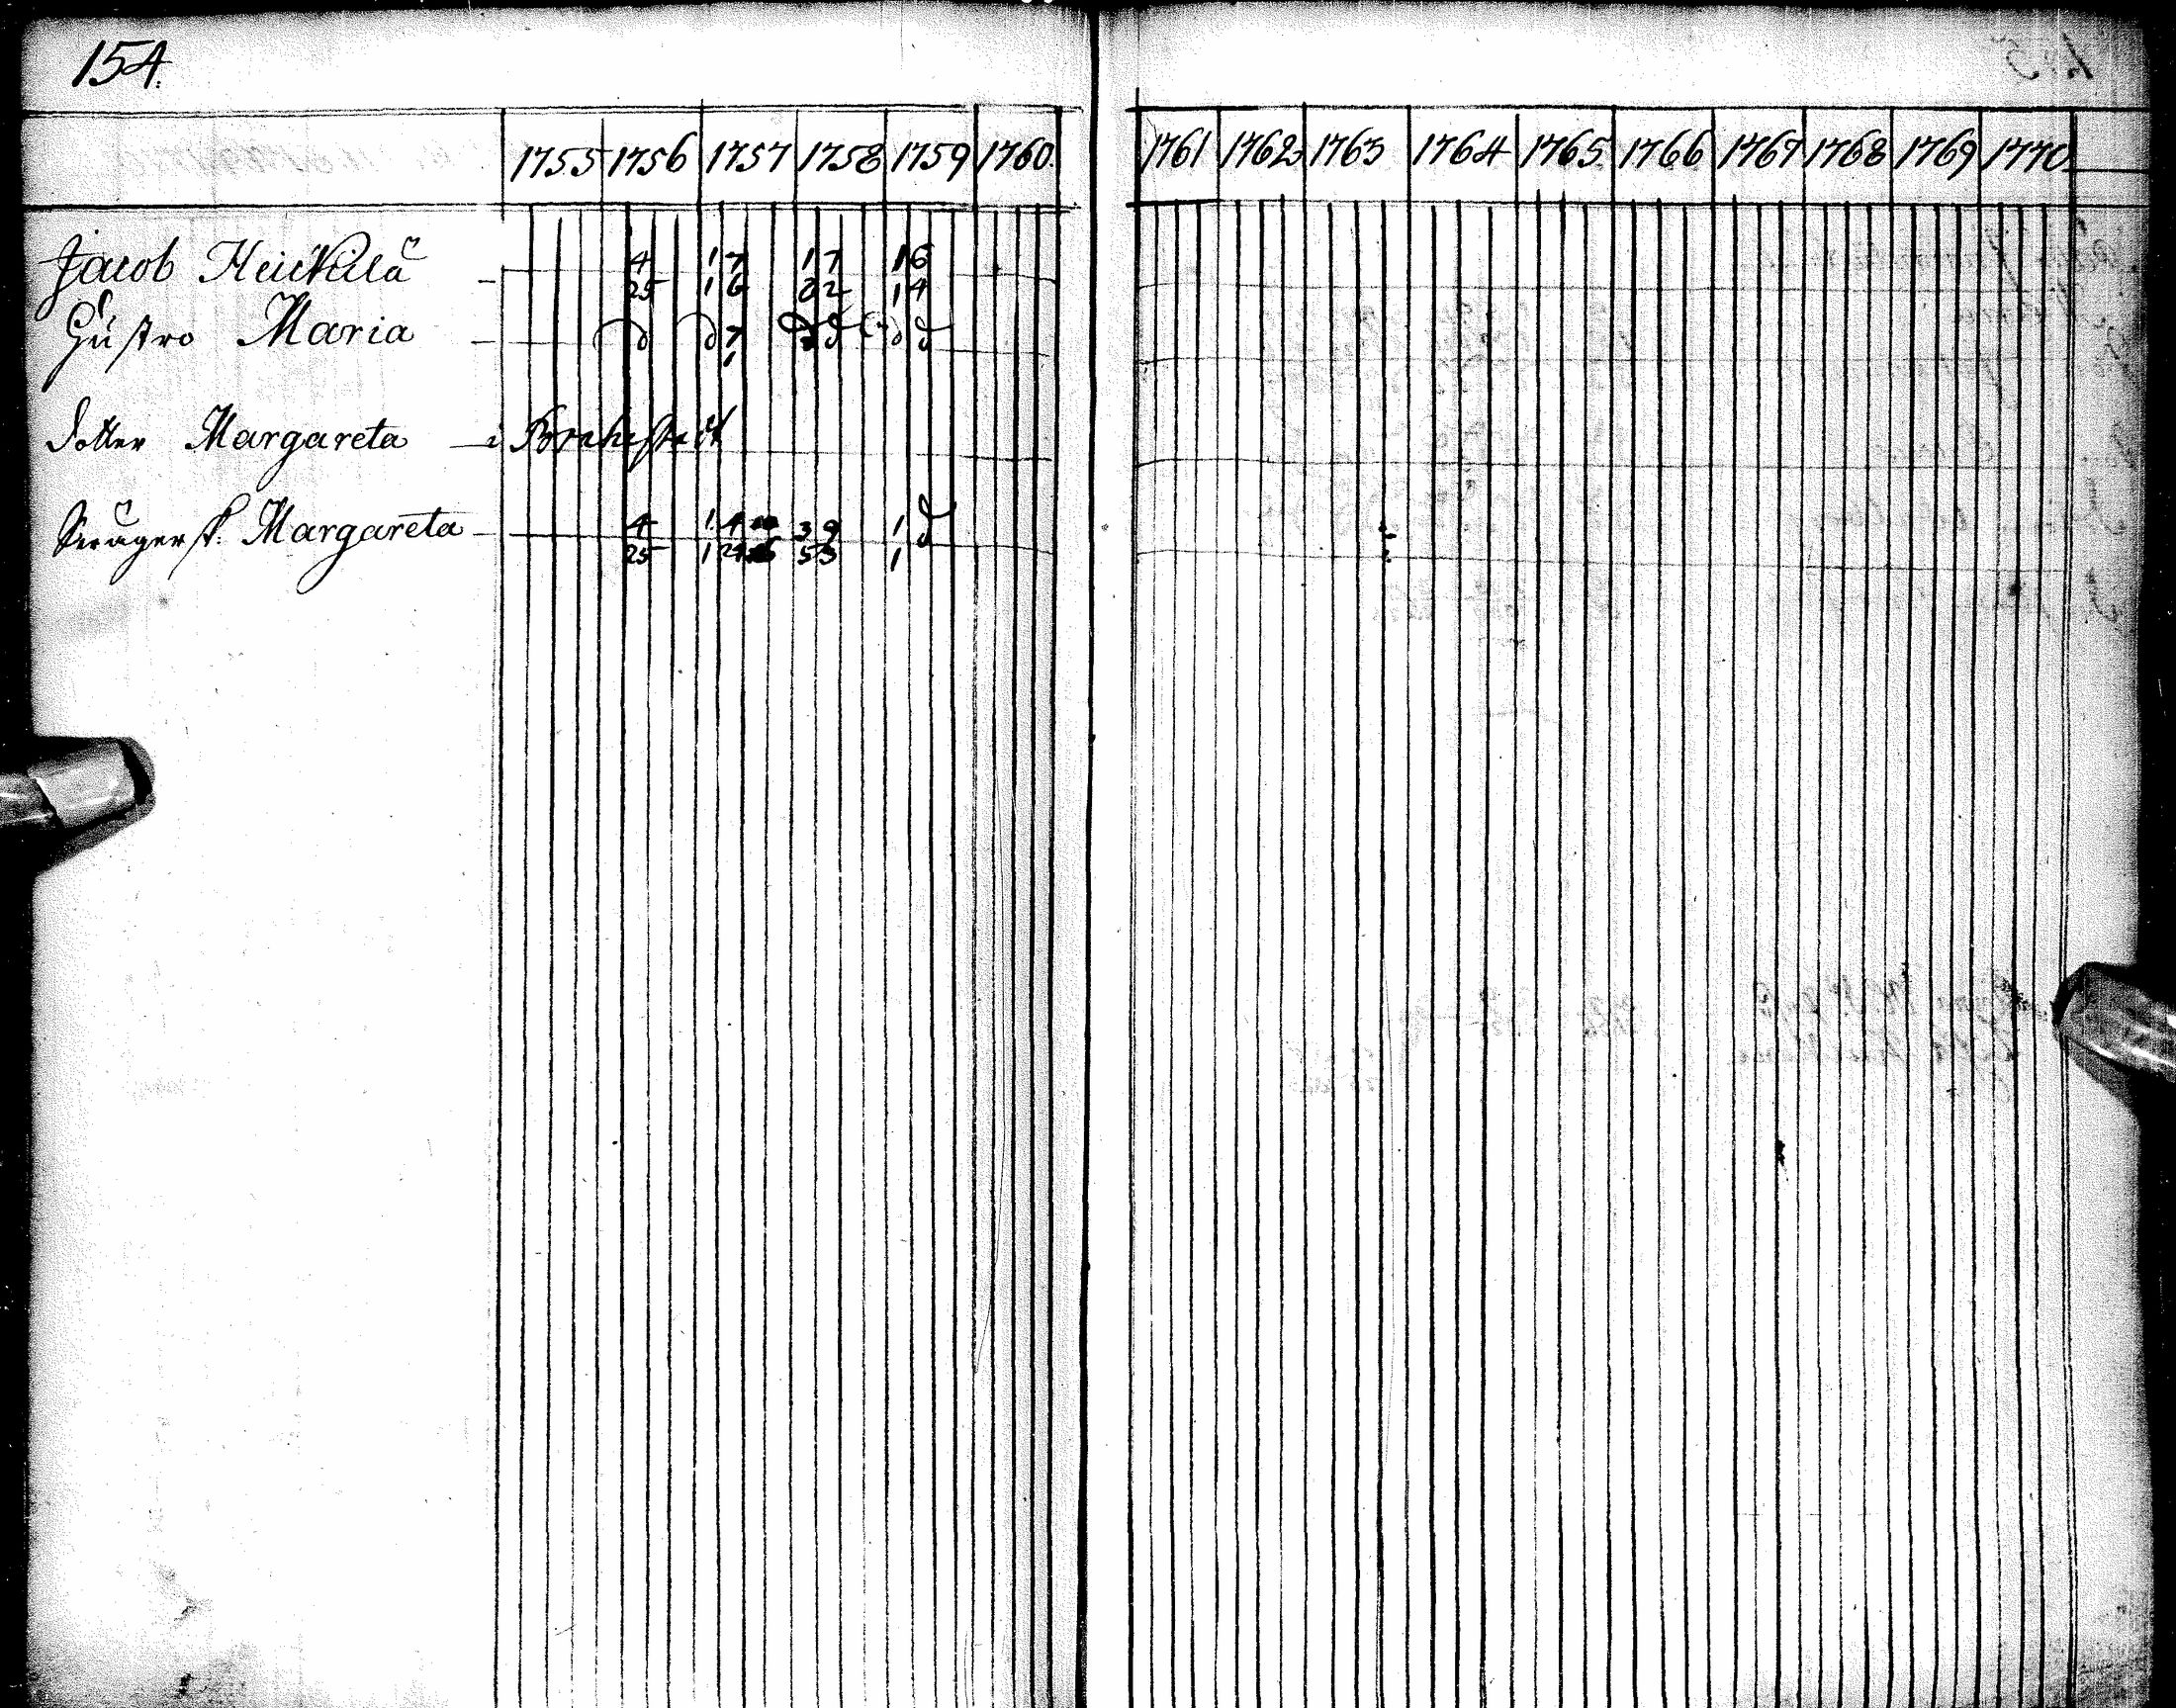 154.
1755 1756 1757 1758 1759 1760. 1761 1762 1763 1764 1765. 1766 1767 1768 1769 1770.
Jacob Heickilä 4 1 7 1 7 16
25 1 6 22 14
Hustro Maria d d 7 d d d d
1
dotter Margareta i Brahestadt
Swägersk: Margareta 4 1 4 3 9 1 d
25 1 24 53 1 d